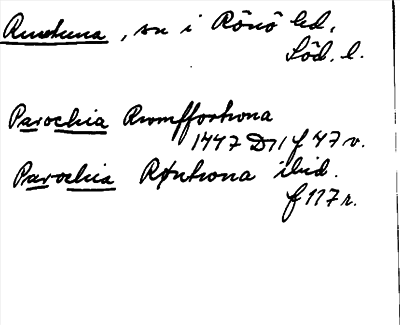 Runtuna, sn i Rönö hd,
Söd. l.
Parochia Rwmffortuna
1447 D11 f 47 v.
Parochia Rwntuna ibid.
f 117 r.